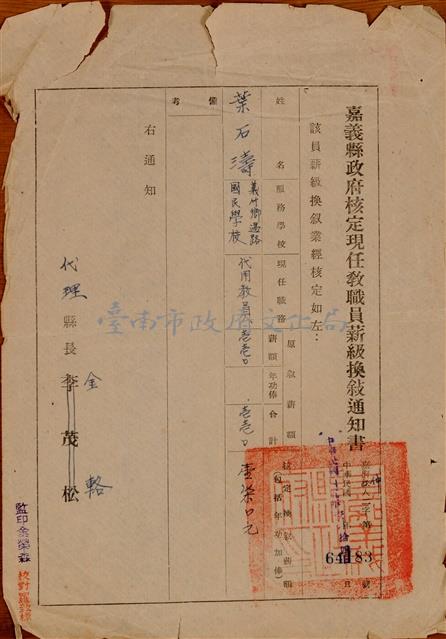 嘉義縣政府核定現任教職員薪級換敍通知書
中華民國
64183
號
日
該員薪級換敘業經核定如左：
姓名
服務學校
現任職務
原敘薪額
薪額
年功俸
合計
核定換敘薪額
(包括年功加俸)
葉石濤
義竹鄉過路
國民學校
代用教員
壹壹〇
壹壹〇
壹柒〇元
備考
右通知
代理縣長李茂松
金輅
監印金榮森
臺南市政府文化局